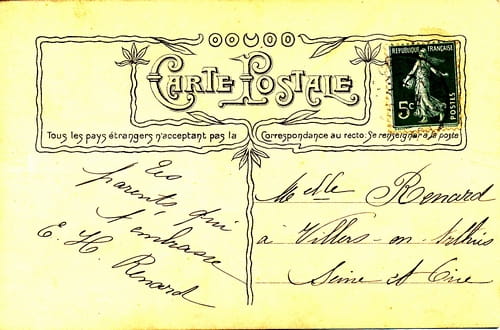 CARTE POSTALE
RÉPUBLIQUE FRANÇAISE
5c
POSTES
Tous les pays étrangers n'acceptant pas la Correspondance au recto. Se renseigner à la poste
Tes
parents, qui
t'embrasse
E. H. Renard
Melle Renard
à Villers-en-Arthies
Seine et Oise